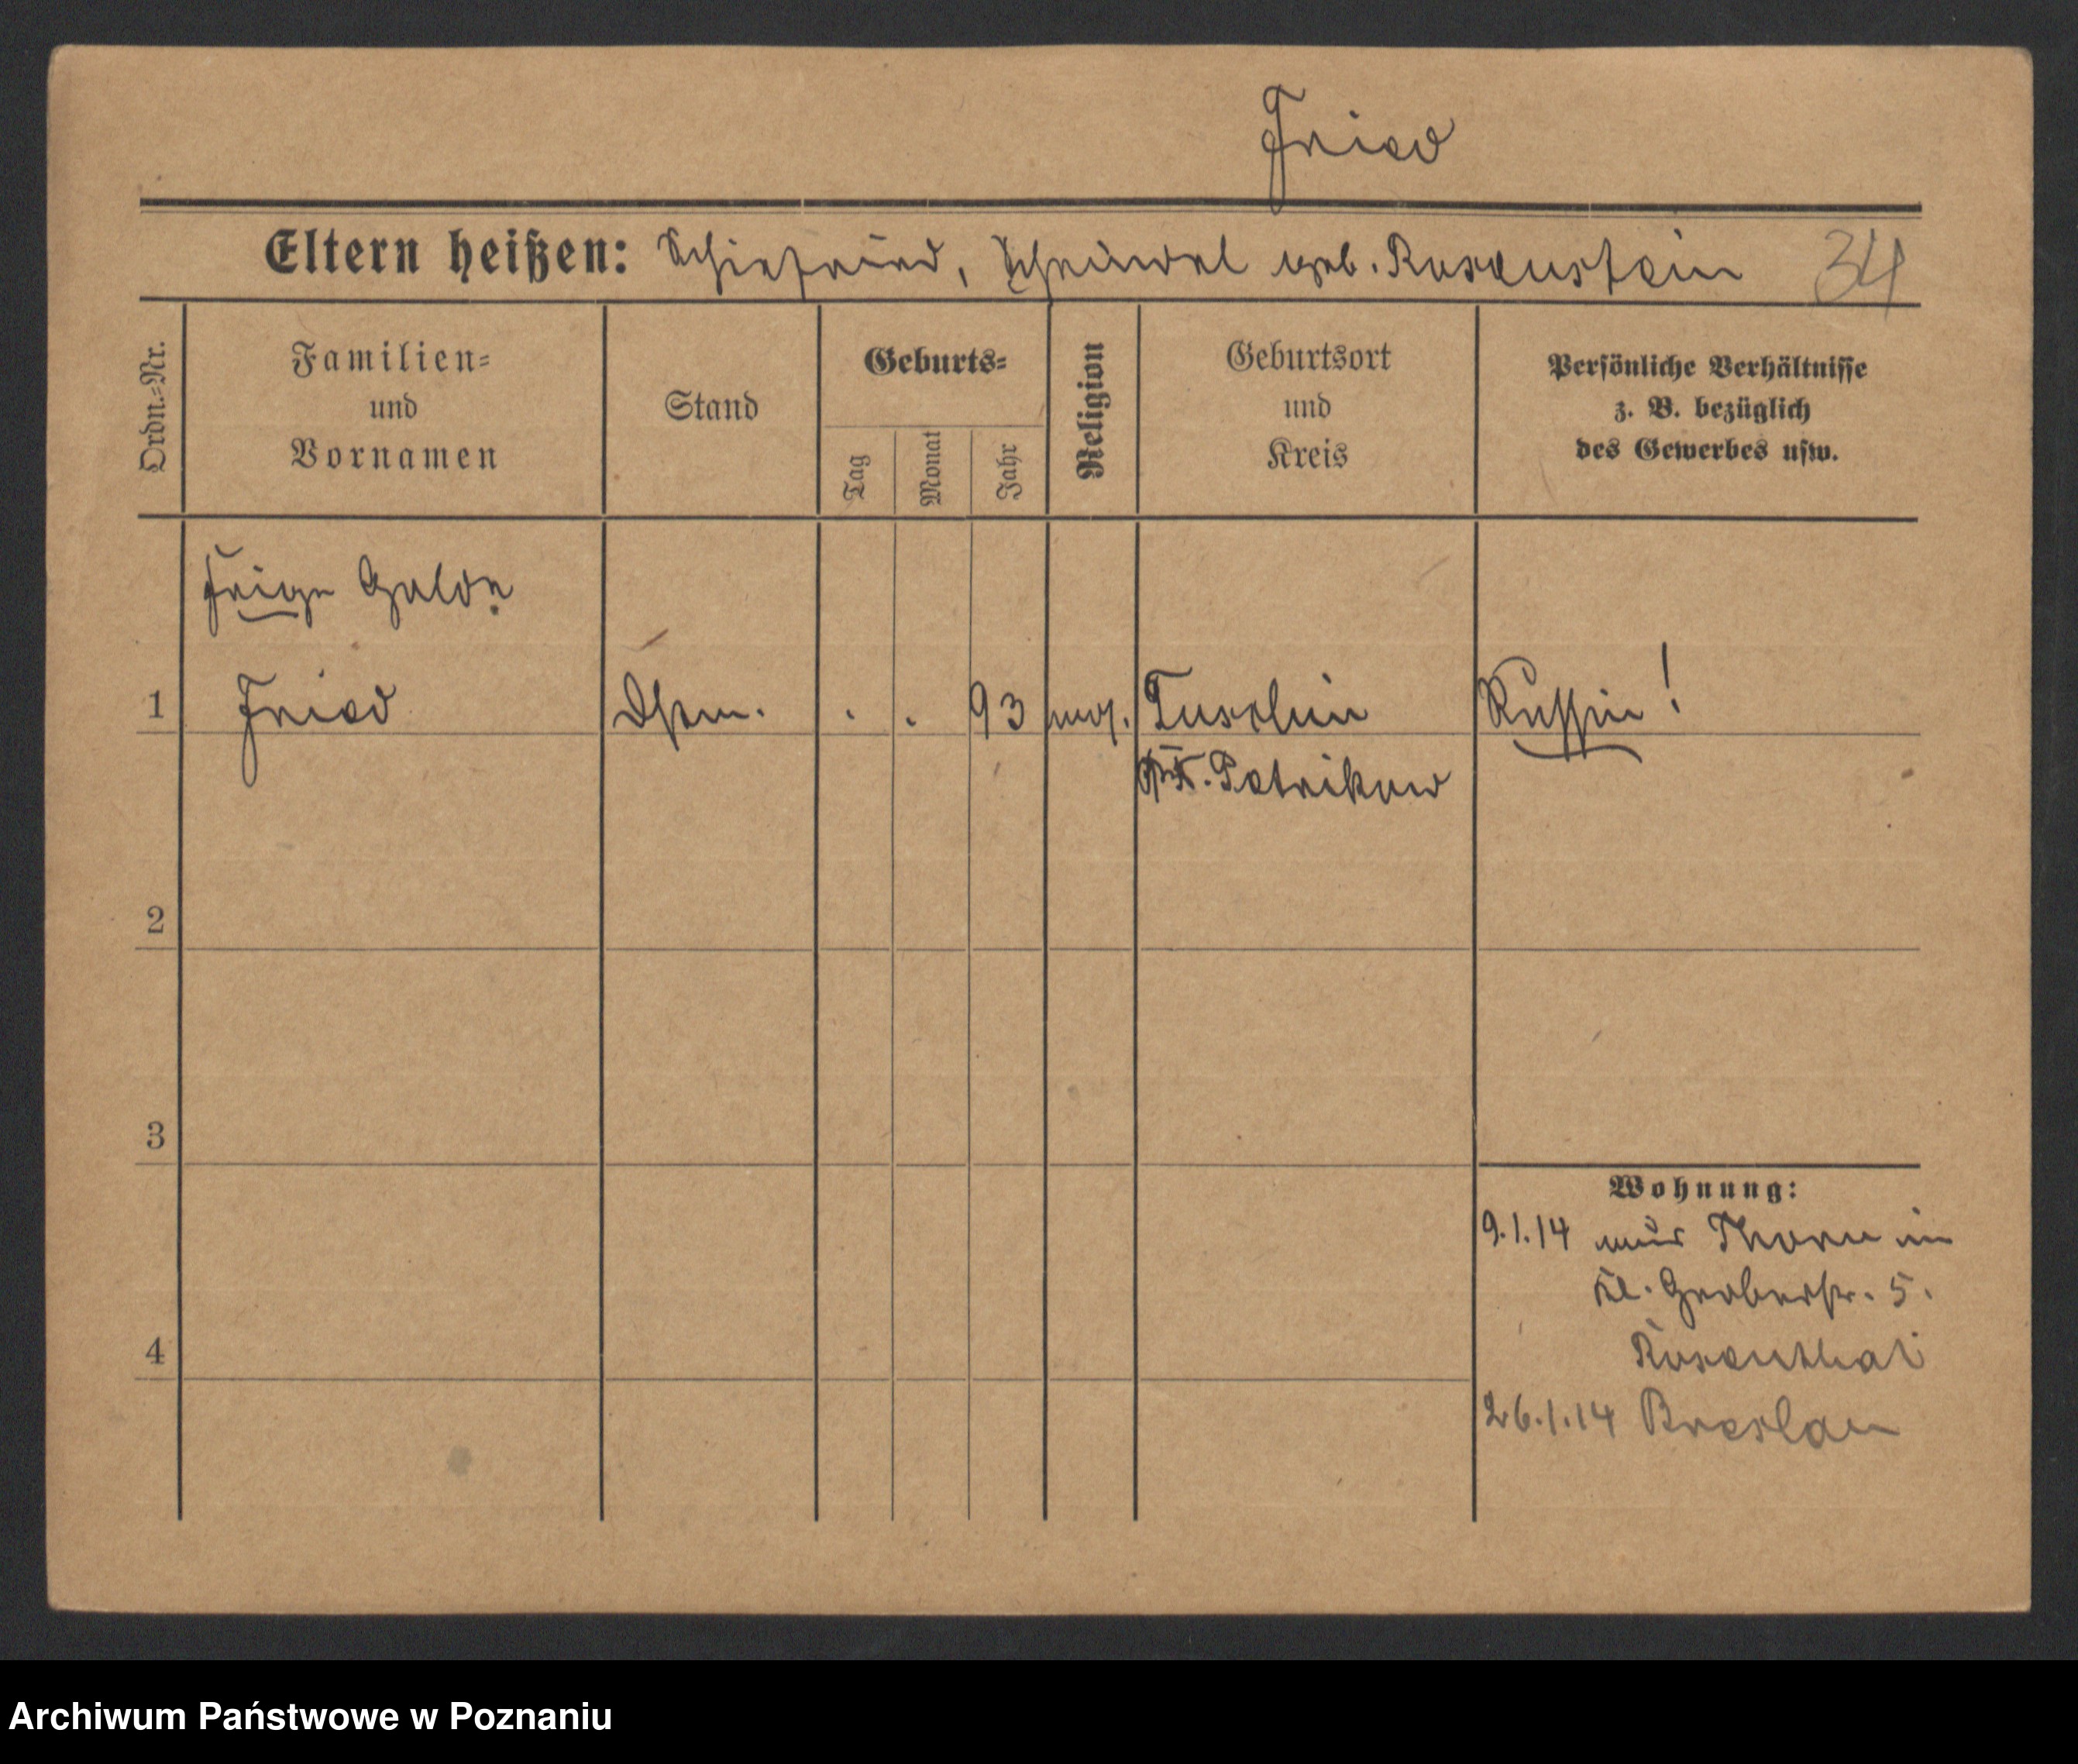 Fried
Eltern heißen: Schiefried, Scheindel geb. Rosenstein 34
Ordn.-Nr.
Familien-
und
Vornamen
Stand
Geburts-
Tag
Monat
Jahr
Religion
Geburtsort
und
Kreis
Persönliche Verhältnisse
z. B. bezüglich
des Gewerbes usw.
Feige Golde
1 Fried . . 93 mos. Tuschin Russin!
Petrikow
2
3
4
Wohnung:
9.1.14 aus Thorn in
Kl. Gerberstr. 5.
Rosenthal
26.1.14 Breslau
Archiwum Państwowe w Poznaniu